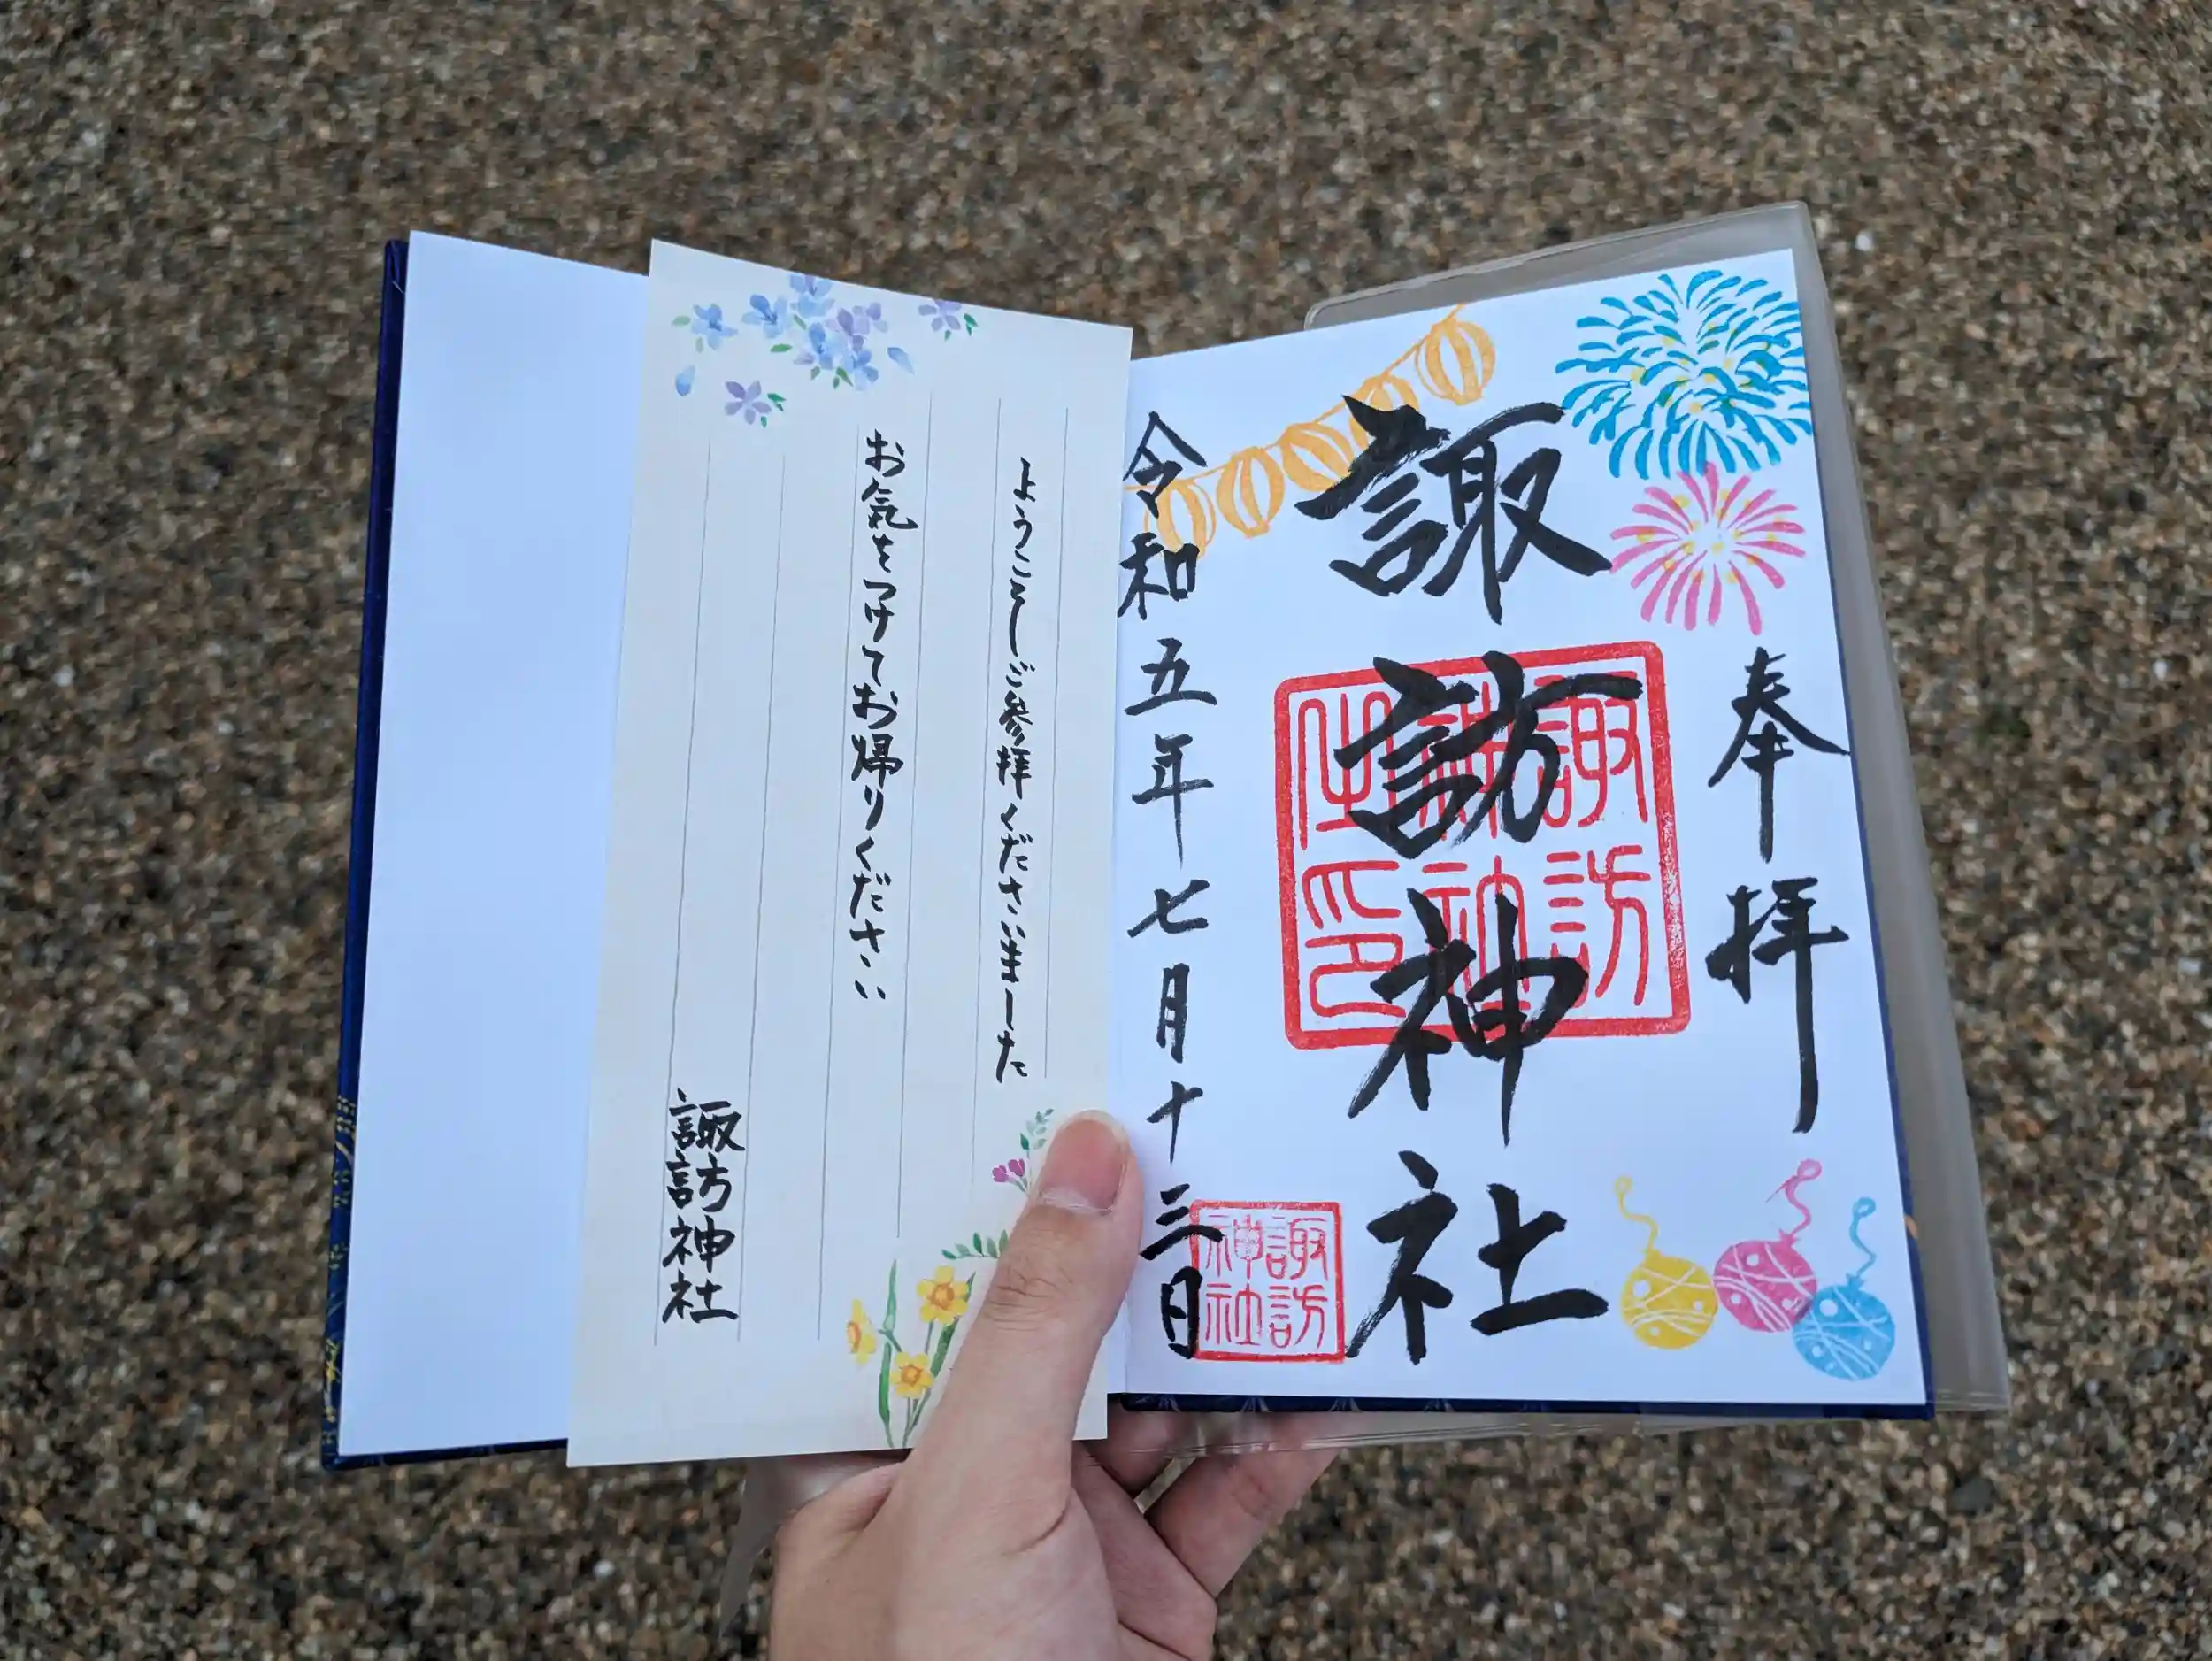 奉拝
諏訪神社
諏訪神社之印
令和五年七月十三日
諏訪神社
ようこそご参拝くださいました
お気をつけてお帰りください
諏訪神社